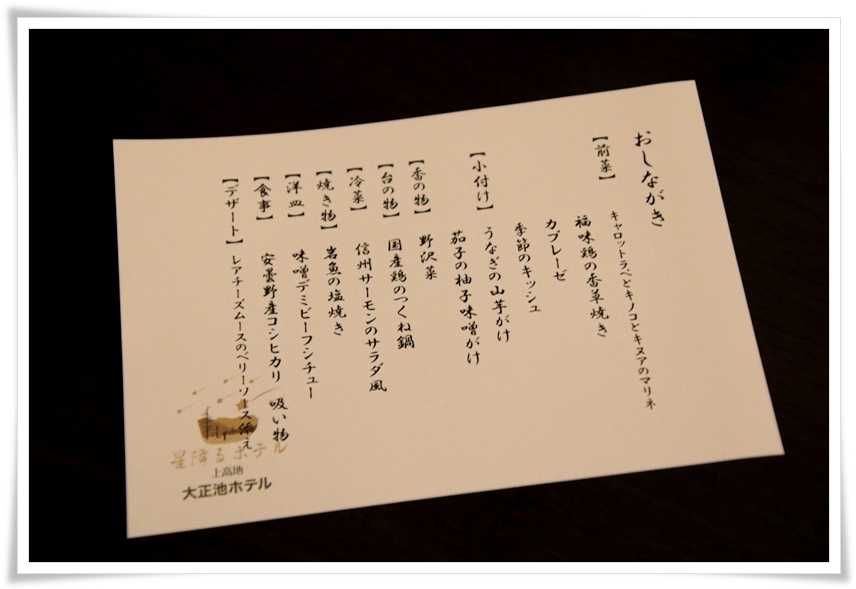 おしながき
【前菜】 キャロットラペとキノコとキヌアのマリネ
福味鶏の香草焼き
カプレーゼ
季節のキッシュ
【小付け】 うなぎの山芋がけ
茄子の柚子味噌がけ
【香の物】 野沢菜
【台の物】 国産鶏のつくね鍋
【冷菜】 信州サーモンのサラダ風
【焼き物】 岩魚の塩焼き
【洋皿】 味噌デミビーフシチュー
【食事】 安曇野産コシヒカリ 吸い物
【デザート】 レアチーズムースのベリーソース添え
星降るホテル
上高地
大正池ホテル